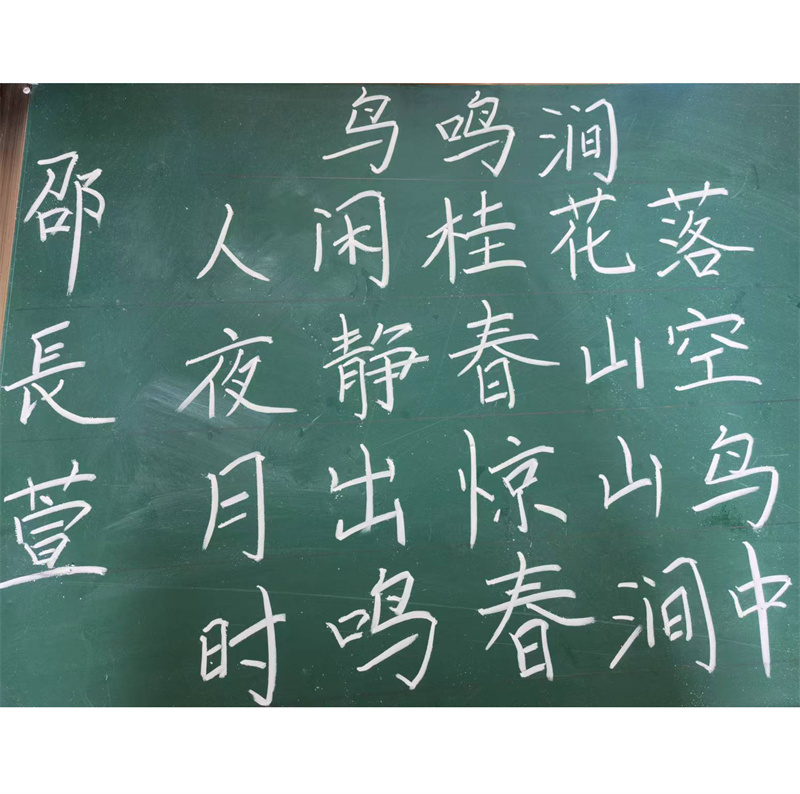 鸟鸣涧
人闲桂花落
夜静春山空
月出惊山鸟
时鸣春涧中
邵長萱